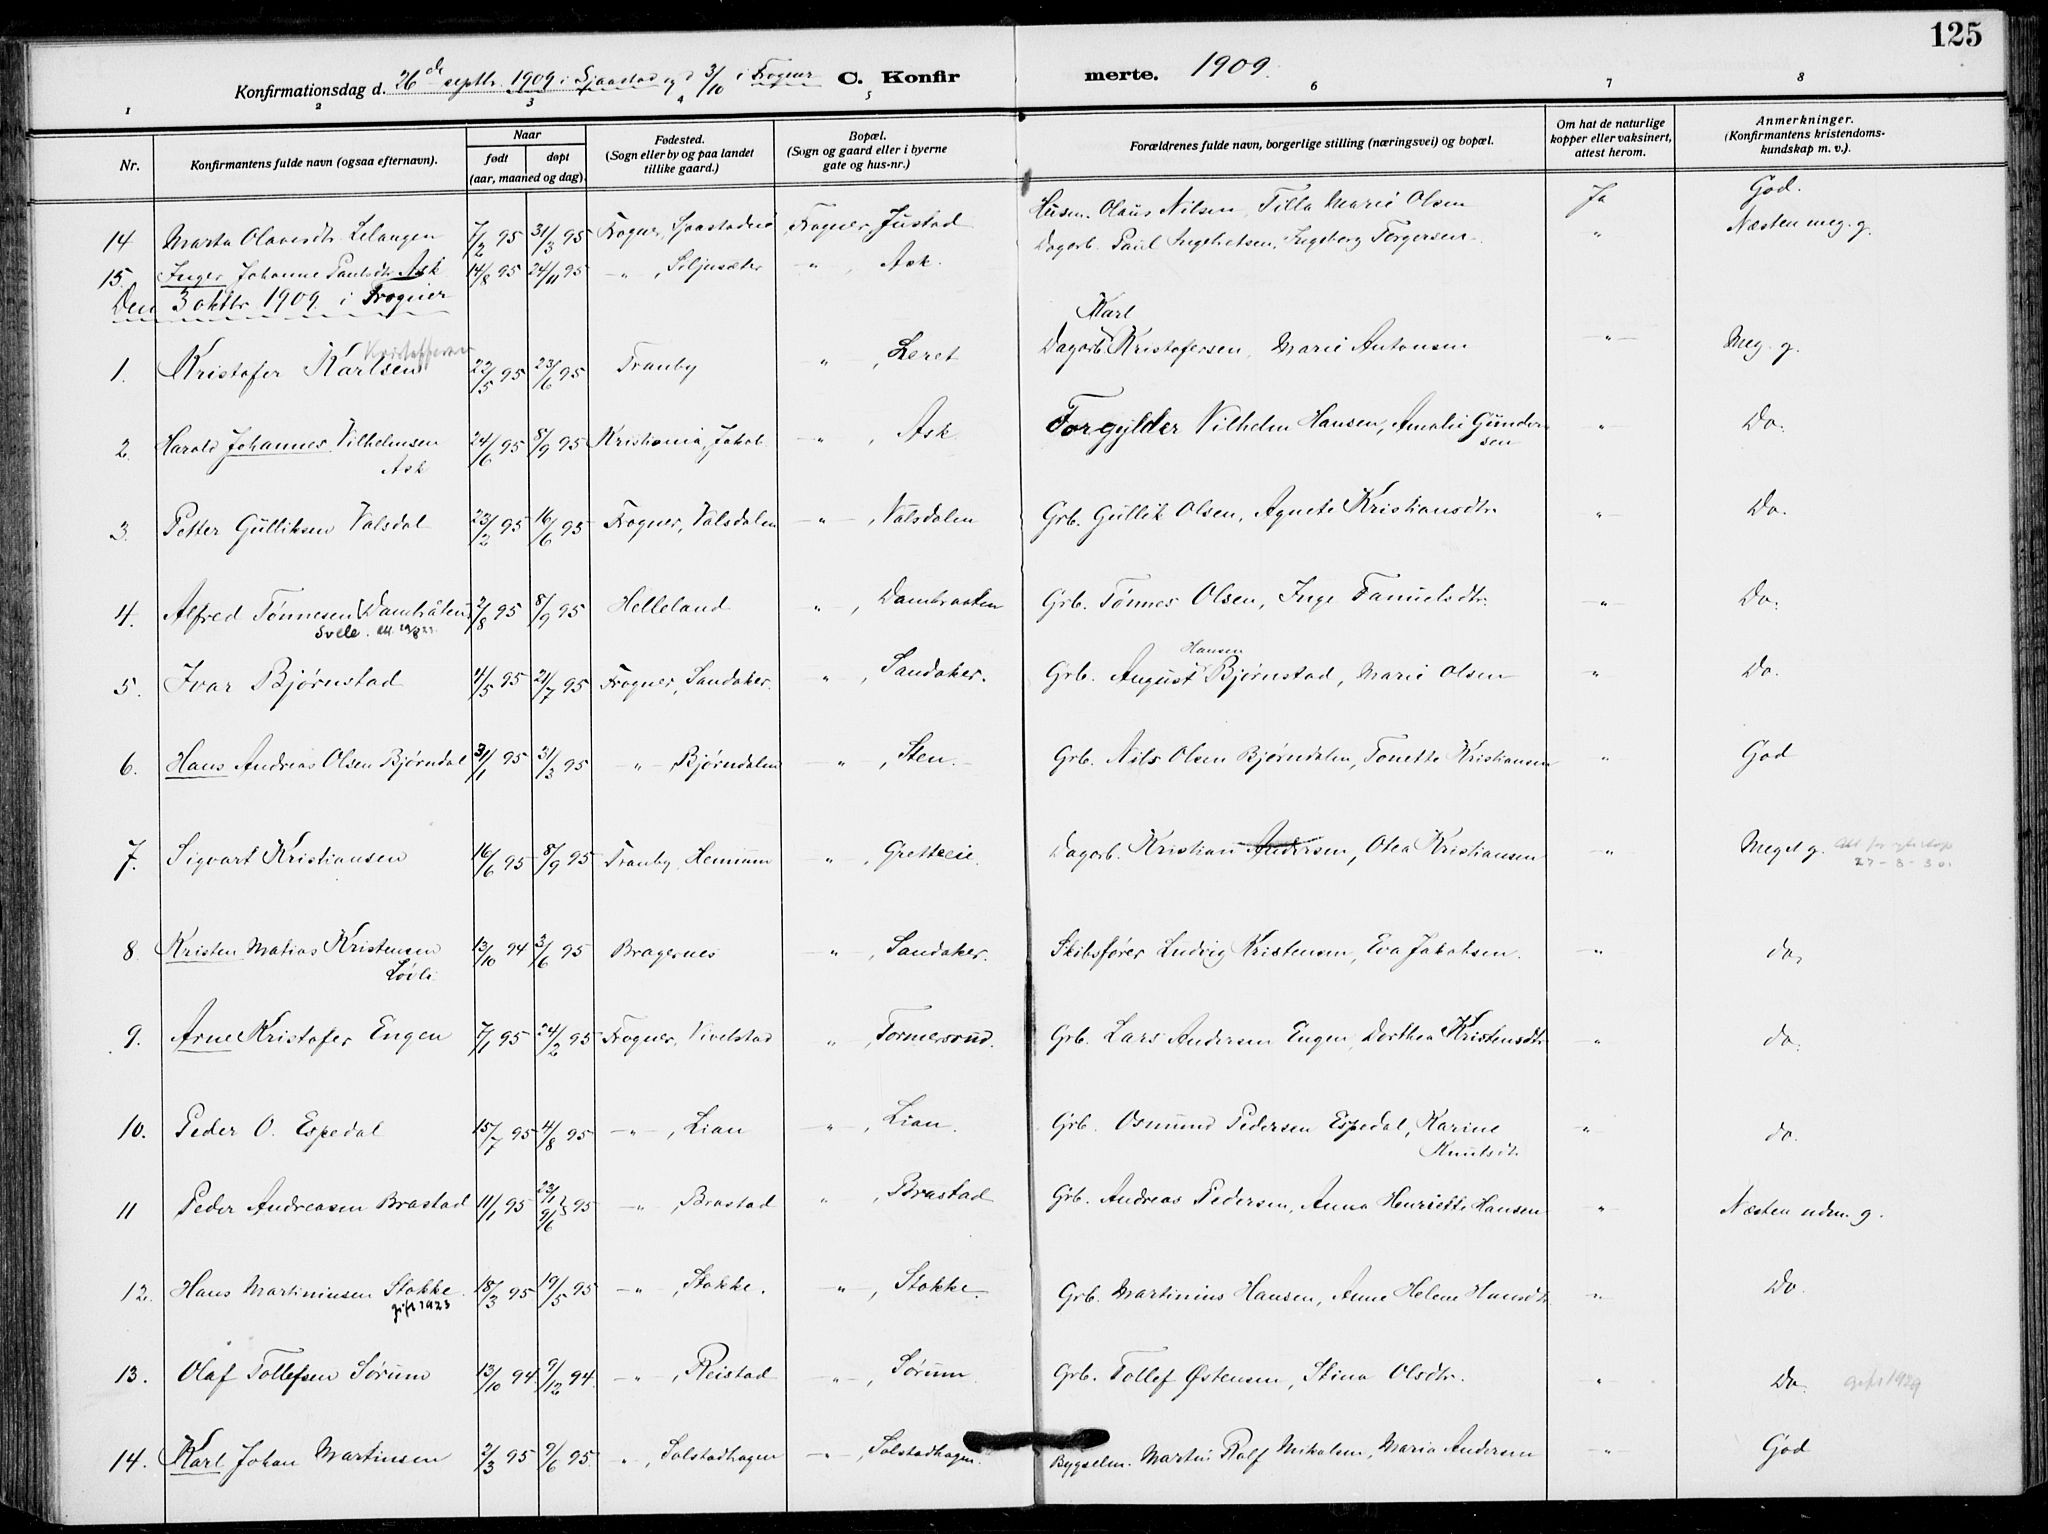 125
Konfirmationsdag d. 26de septbr. 1909 i Sjaastad og d 3/10 i Frogner C. Konfirmerte. 1909.
1 2 3 4 5 6 7 8
Nr. Konfirmantens fulde navn (ogsaa efternavn). Naar født døpt (aar, maaned og dag). Fødested. (Sogn eller by og paa landet tillike gaard.) Bopæl. (Sogn og gaard eller i byerne gate og hus-nr.) Forældrenes fulde navn, borgerlige stilling (næringsvei) og bopæl. Om hat de naturlige kopper eller vaksinert, attest herom. Anmerkninger. (Konfirmantens kristendoms-kundskap m. v.).
14 Marta Olavesdtr. Lelangen 7/2 95 31/3 95 Frogner, Frogner, Justad Husm. Olaus Nilsen, Tilla Marie Olsen Ja God.
15. Inger Johanne Paulsdtr. Ask 14/8 95 24/11 95 — " —, Siljusæter — " —, Ask. Dagarb. Paul Ingebretsen, Ingeborg Torgersen. " Næsten meg. g.
Den 3 oktbr. 1909 i Frogner
1. Kristofer Karlsen Kristoffersen 22/5 95 23/6 95 Tranby ", Leret Dagarb. Karl Kristofersen, Marie Antonsen — " — Meg. g.
2. Harald Johannes Vilhelmsen Ask 24/6 95 8/9 95 Kristiania, Jakob — " —, Ask Forgylder Vilhelm Hansen, Amalie Gundersen — " — Do.
3. Petter Gulliksen Valsdal 23/2 95 16/6 95 Frogner, Valsdalen — " —, Valsdalen Grb. Gullik Olsen, Agnete Kristiansdtr. — " — Do.
4. Alfred Tønnesen (Dambråten) Svele 2/8 95 8/9 95 Helleland ", Dambraaten Grb. Tønnes Olsen, Inge Tanuelsdtr. — " — Do.
5. Ivar Bjørnstad 4/5 95 21/7 95 Frogner, Sandaker. ", Sandaker. Grb. August Hansen Bjørnstad, Marie Olsen " Do.
6. Hans Andreas Olsen Bjørndal 31/1 95 31/3 95 — " —, Bjørndalen — " —, Sten. Grb. Nils Olsen Bjørndalen, Tonette Kristiansen " God
7. Sigvart Kristiansen 16/6 95 8/9 95 Tranby, Hennum ", Gretteeie Dagarb. Kristian Andersen, Otea Kristiansen — " — Meget g. 27-8-30.
8. Kristen Matias Kristensen Løvli 13/10 94 3/6 95 Bragernes — " —, Sandaker. Skibsfører Ludvig Kristensen, Eva Jakobsen. — " — do.
9. Arne Kristofer Engen 7/1 95 24/2 95 Frogner, Vivelstad ", Tormersrud. Grb. Lars Andersen Engen, Dorthea Kristensdtr. — " — do.
10. Peder O. Espedal 15/7 95 4/8 95 — " —, Lian — " —, Lian. Grb. Osmund Pedersen Espedal, Karine Knutsdt. " do.
11 Peder Andreasen Brastad 11/1 95 23/1 9/6 95 — " —, Brastad ", Brastad Grb. Andreas Pedersen, Anna Henriette Hansen — " — Næsten udm. g.
12. Hans Martiniusen Stokke gift 1923 18/3 95 19/5 95 — " —, Stokke. — " —, Stokke. Grb. Martinius Hansen, Anne Helene Hansdtr. — " — Do.
13. Olaf Tollefsen Sørum 13/10 94 9/12 94 — " —, Reistad — " —, Sørum Grb. Tollef Østensen, Stina Olsdtr. — " — Do. gift 1929
14. Karl Johan Martinsen 2/3 95 9/6 95 — " —, Solstadhagen — " —, Solstadhagen. Bygselm. Martin Rolf Mikalsen, Maria Andersen — " — God